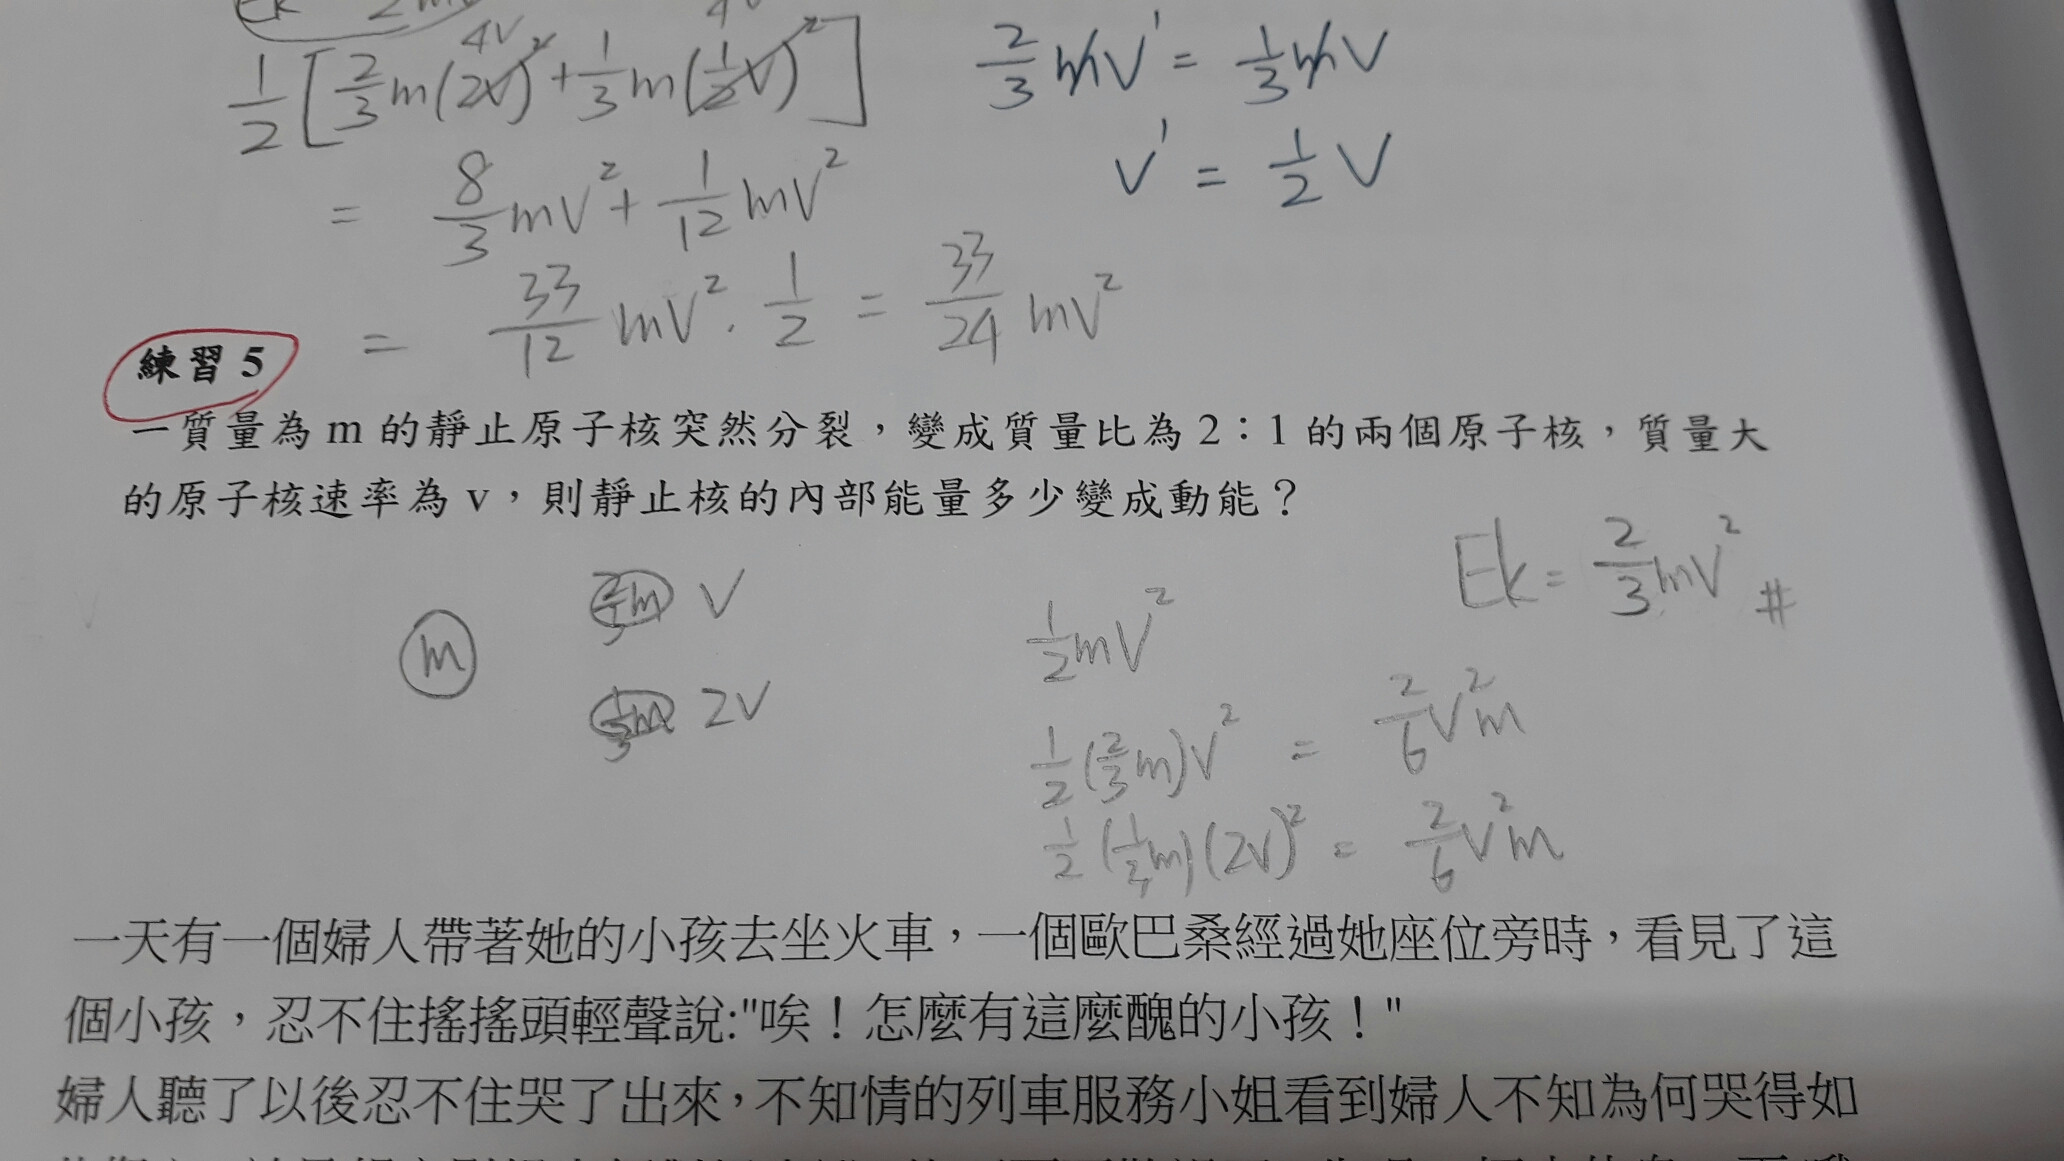 Ek
1/2[2/3m(2v)²+1/3m(1/2v)²] 4v
2/3mv' = 1/3mv
= 8/3mv²+1/12mv²
v' = 1/2v
= 33/12mv²·1/2 = 33/24mv²
練習 5
一質量為 m 的靜止原子核突然分裂，變成質量比為 2：1 的兩個原子核，質量大
的原子核速率為 v，則靜止核的內部能量多少變成動能？
Ek = 2/3mv² #
2/3m v
1/2mv²
m
1/3m 2v
1/2(2/3m)v² = 2/6v²m
1/2(1/3m)(2v)² = 2/6v²m
一天有一個婦人帶著她的小孩去坐火車，一個歐巴桑經過她座位旁時，看見了這
個小孩，忍不住搖搖頭輕聲說:"唉！怎麼有這麼醜的小孩！"
婦人聽了以後忍不住哭了出來，不知情的列車服務小姐看到婦人不知為何哭得如